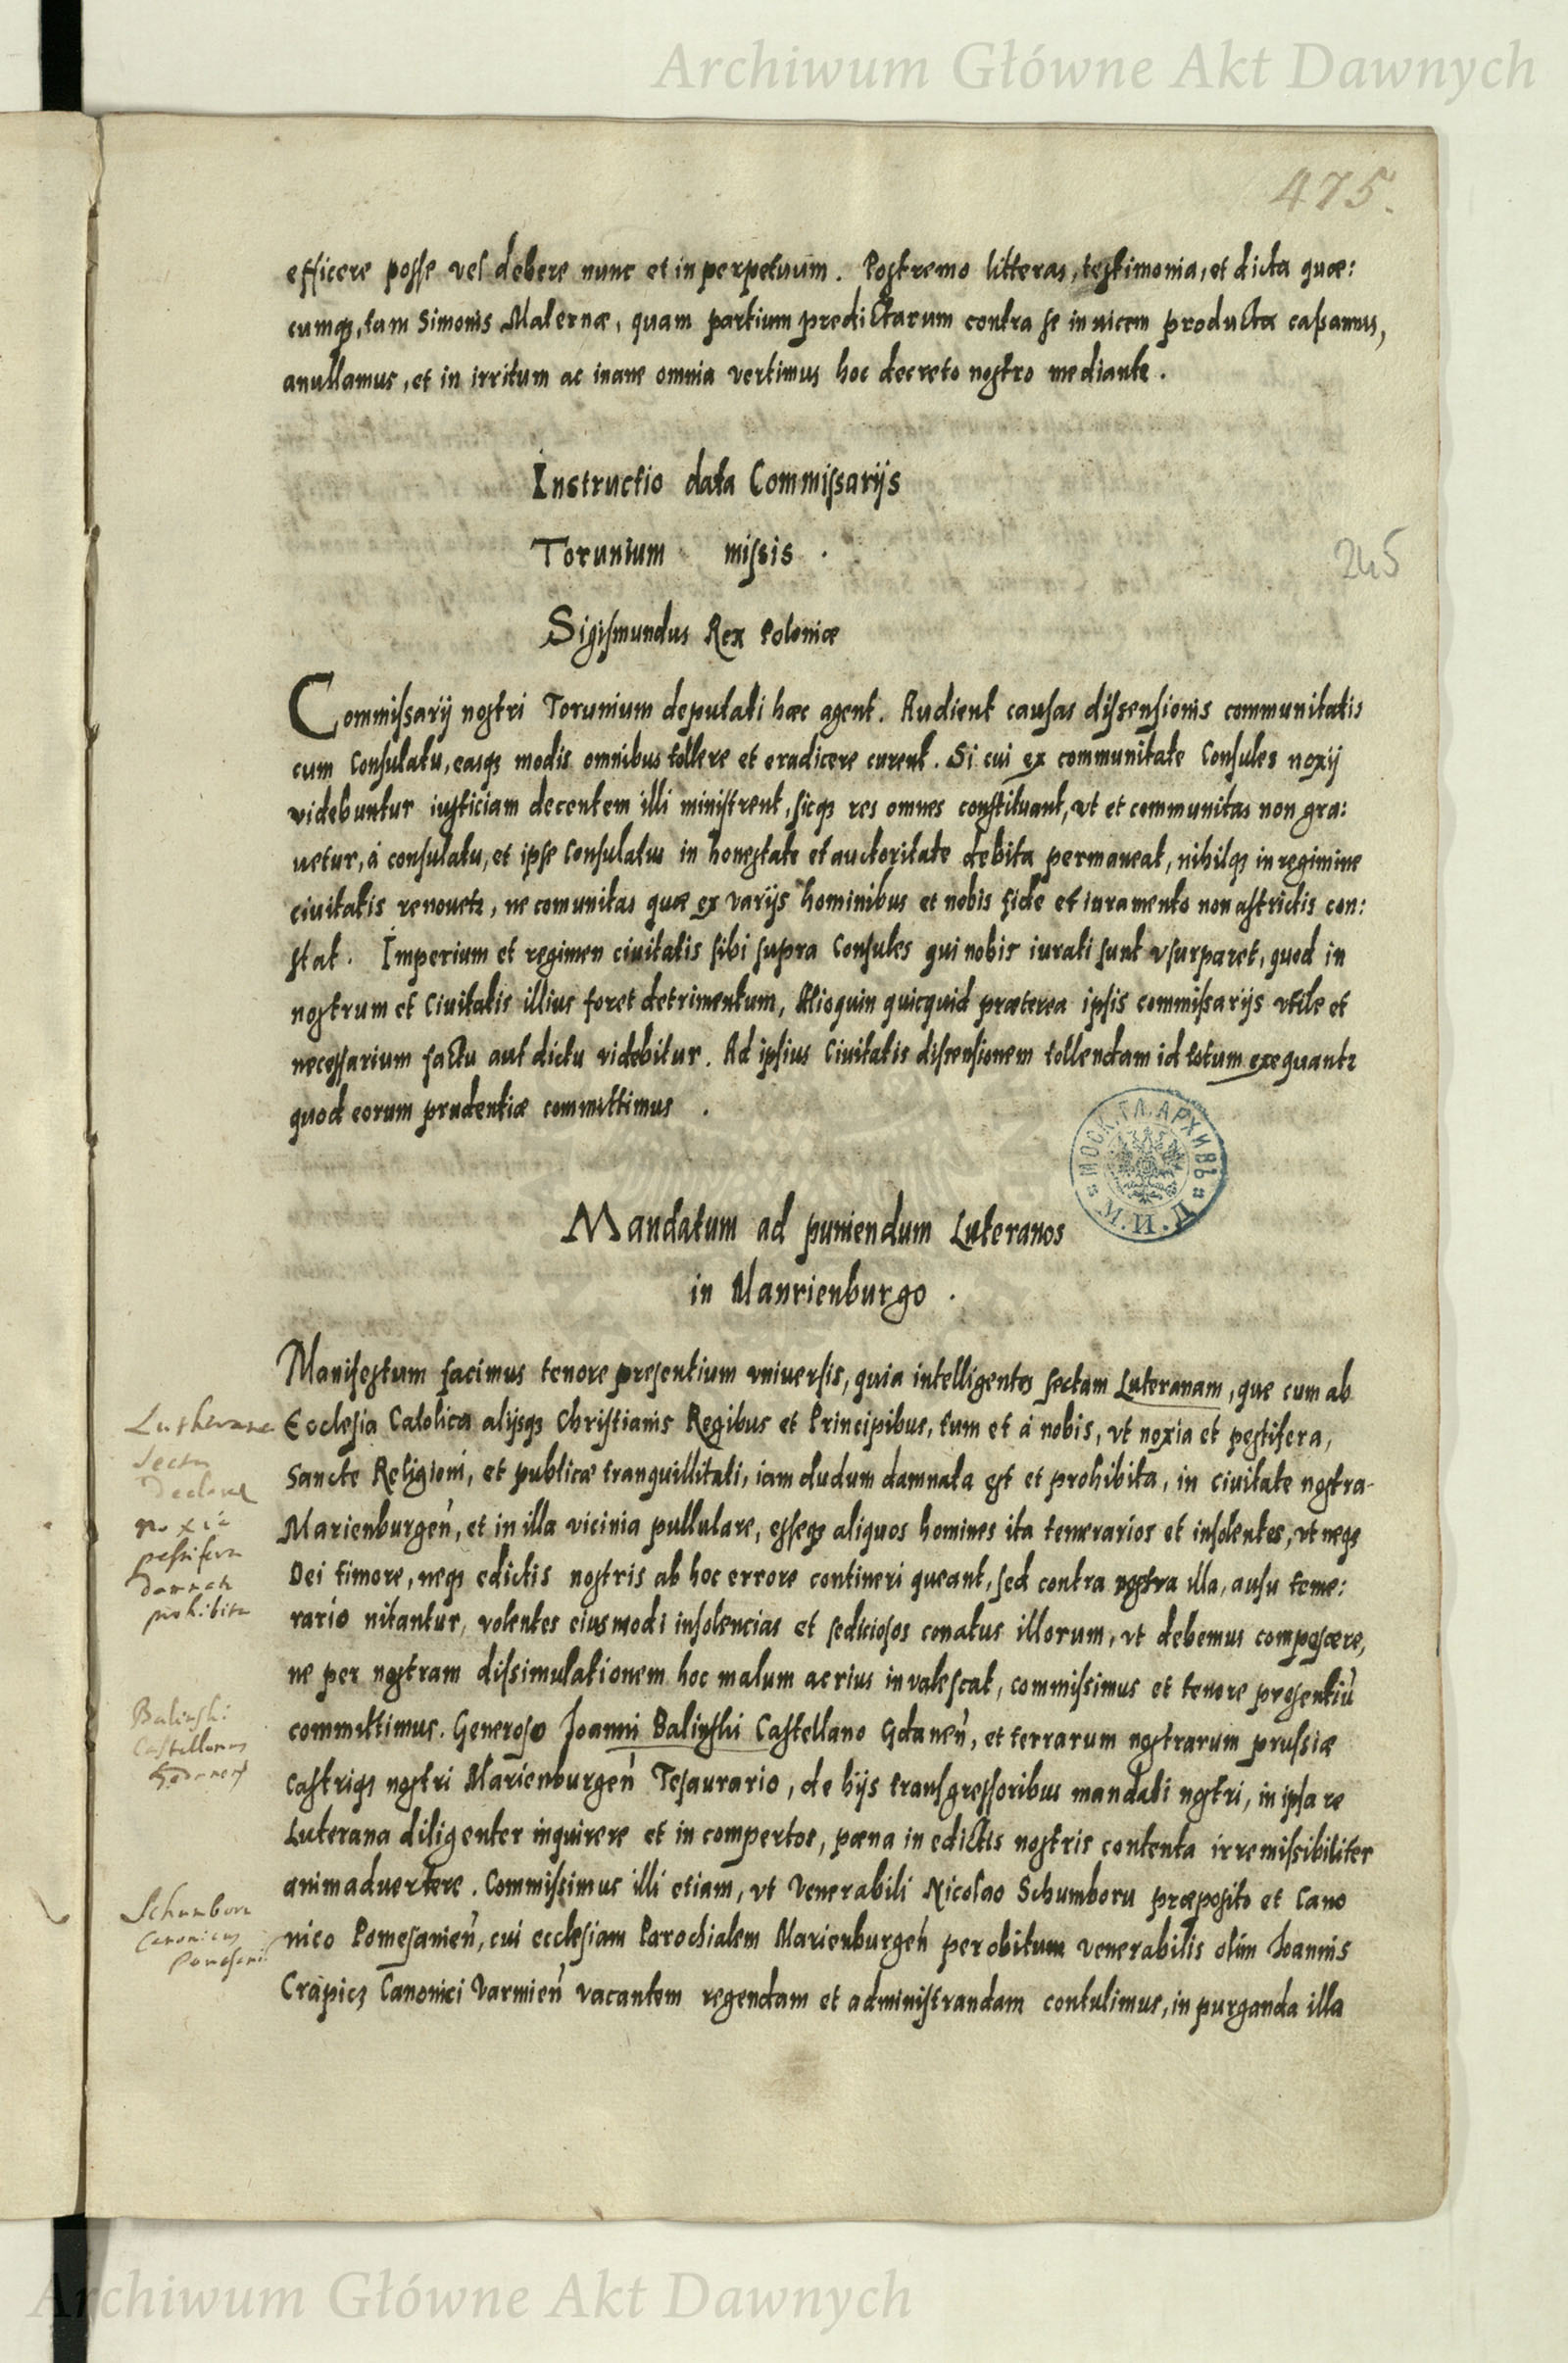 Archiwum Główne Akt Dawnych
475.
efficere posse vel debere nunc et in perpetuum. Postremo litteras, testimonia, et dicta quæ:
cumq3, tam Simonis Maternæ, quam partium predictarum contra se inuicem producta cassamus,
anullamus, et in irritum ac inane omnia vertimus hoc decreto nostro mediante.
Instructio data Commissarijs
Torunium missis.
245
Sigismundus Rex Poloniæ
Commissarij nostri Torunium deputati hæc agent. Audient causas dissensionis communitatis
cum Consulatu, easq3 modis omnibus tollere et eradicere curent. Si cui ex communitate Consules noxij
videbuntur iusticiam decentem illi ministrent, sicq3 res omnes constituant, vt et communitas non gra:
uetur, à consulatu, et ipse Consulatus in honestate et auctoritate debita permaneat, nihilq3 in regimine
ciuitatis renouetr, ne comunitas quæ ex varijs hominibus et nobis fide et iuramento non astrictis con:
stat. Imperium et regimen ciuitatis sibi supra Consules qui nobis iurati sunt vsurparet, quod in
nostrum et Ciuitatis illius foret detrimentum, Alioquin quicquid præterea ipsis commissarijs vtile et
necessarium factu aut dictu videbitur. Ad ipsius Ciuitatis dissensionem tollendam id totum exequantr
quod eorum prudentiæ committimus.
МОСК. ГЛ. АРХИВЪ М. И. Д.
Mandatum ad puniendum Luteranos
in Manrienburgo.
Manifestum facimus tenore presentium vniuersis, quia intelligentes sectam Luteranam, que cum ab
Ecclesia Catolica alijsq3 Christianis Regibus et Principibus, tum et à nobis, vt noxia et pestifera,
Sancte Religioni, et publicæ tranquillitati, iam dudum damnata est et prohibita, in ciuitate nostra
Marienburgeñ, et in illa vicinia pullulare, esseq3 aliquos homines ita temerarios et insolentes, vt neq3
Dei timore, neq3 edictis nostris ab hoc errore contineri queant, sed contra nostra illa, ausu teme:
rario nitantur, volentes eiusmodi insolencias et sediciosos conatus illorum, vt debemus compescere,
ne per nostram dissimulationem hoc malum acrius inualescat, commissimus et tenore presentiũ
committimus. Generoso Joanni Balinski Castellano Gdaneñ, et terrarum nostrarum prussiæ
castriq3 nostri Marienburgeñ Tesaurario, de hijs transgressoribus mandati nostri, in ipsa re
Luterana diligenter inquirere et in compertos, pæna in edictis nostris contenta irremissibiliter
animaduertere. Commissimus illi etiam, vt Venerabili Nicolao Schumborn præposito et Cano
nico Pomesanieñ, cui ecclesiam Parochialem Marienburgeñ per obitum venerabilis olim Joannis
Crapicz Canonici Varmieñ vacantem regendam et administrandam contulimus, in purganda illa
Lutherane
Secta
noxia
pestifera
damnata
prohibita
Balinski
Castellanus
Gedanens
Schumborn
Canonicus
Pomesani
Archiwum Główne Akt Dawnych